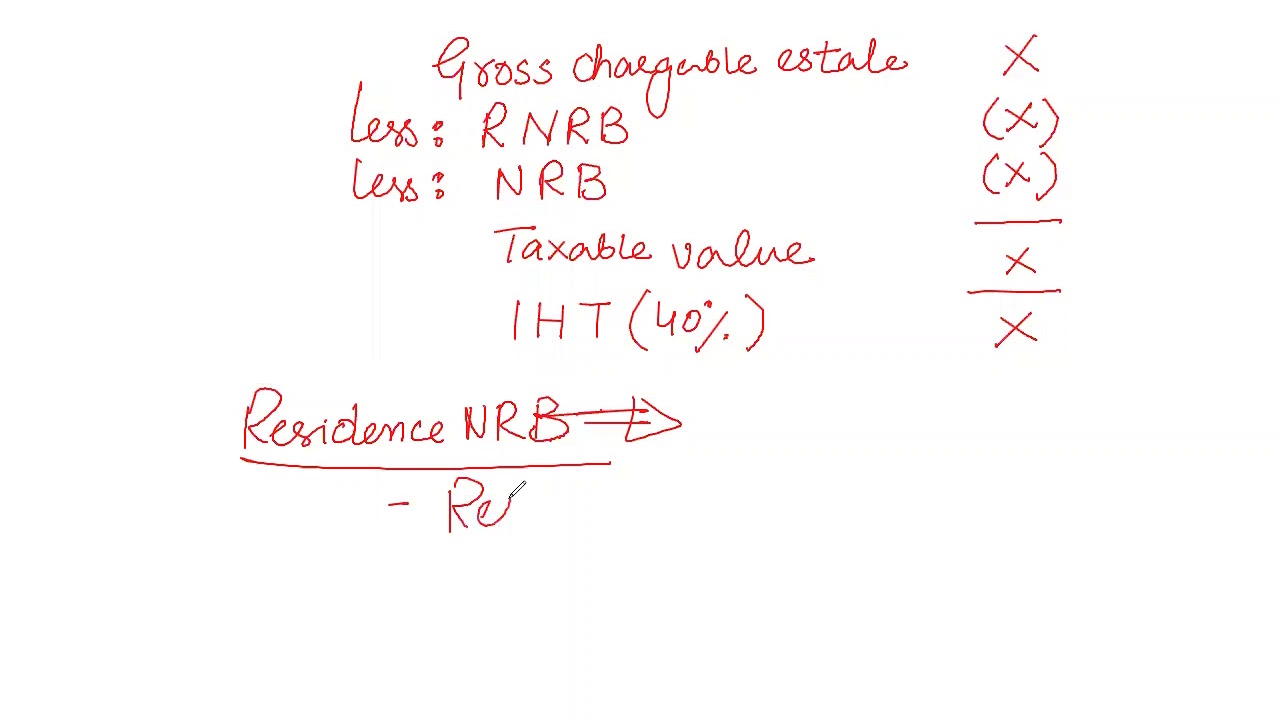 Gross chargable estate X
less: RNRB (X)
less: NRB (X)
Taxable value X
IHT (40%) X
Residence NRB
- Re